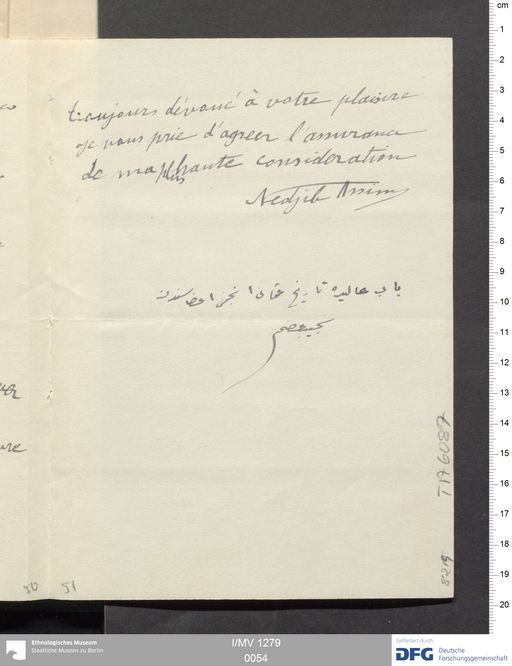 toujours dévoué à votre plaisire
Je vous prie d'agréer l'assurance
de ma plus haute consideration
Nedjib Assim
باب عاليده تاريخ عثمانى انجمنى اعضاسندن
نجيب عاصم
ure
T17 6087
8219
50
51
cm
1
2
3
4
5
6
7
8
9
10
11
12
13
14
15
16
17
18
19
20
Ethnologisches Museum
Staatliche Museen zu Berlin
I/MV 1279
0054
Gefördert durch
DFG
Deutsche
Forschungsgemeinschaft